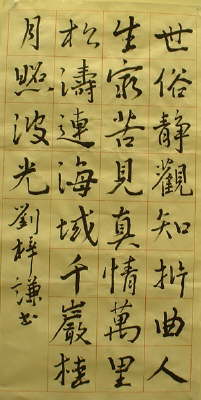 世俗靜觀知折曲人
生家苦見真情萬里
松濤連海域千巖桂
月照波光劉梓謙书